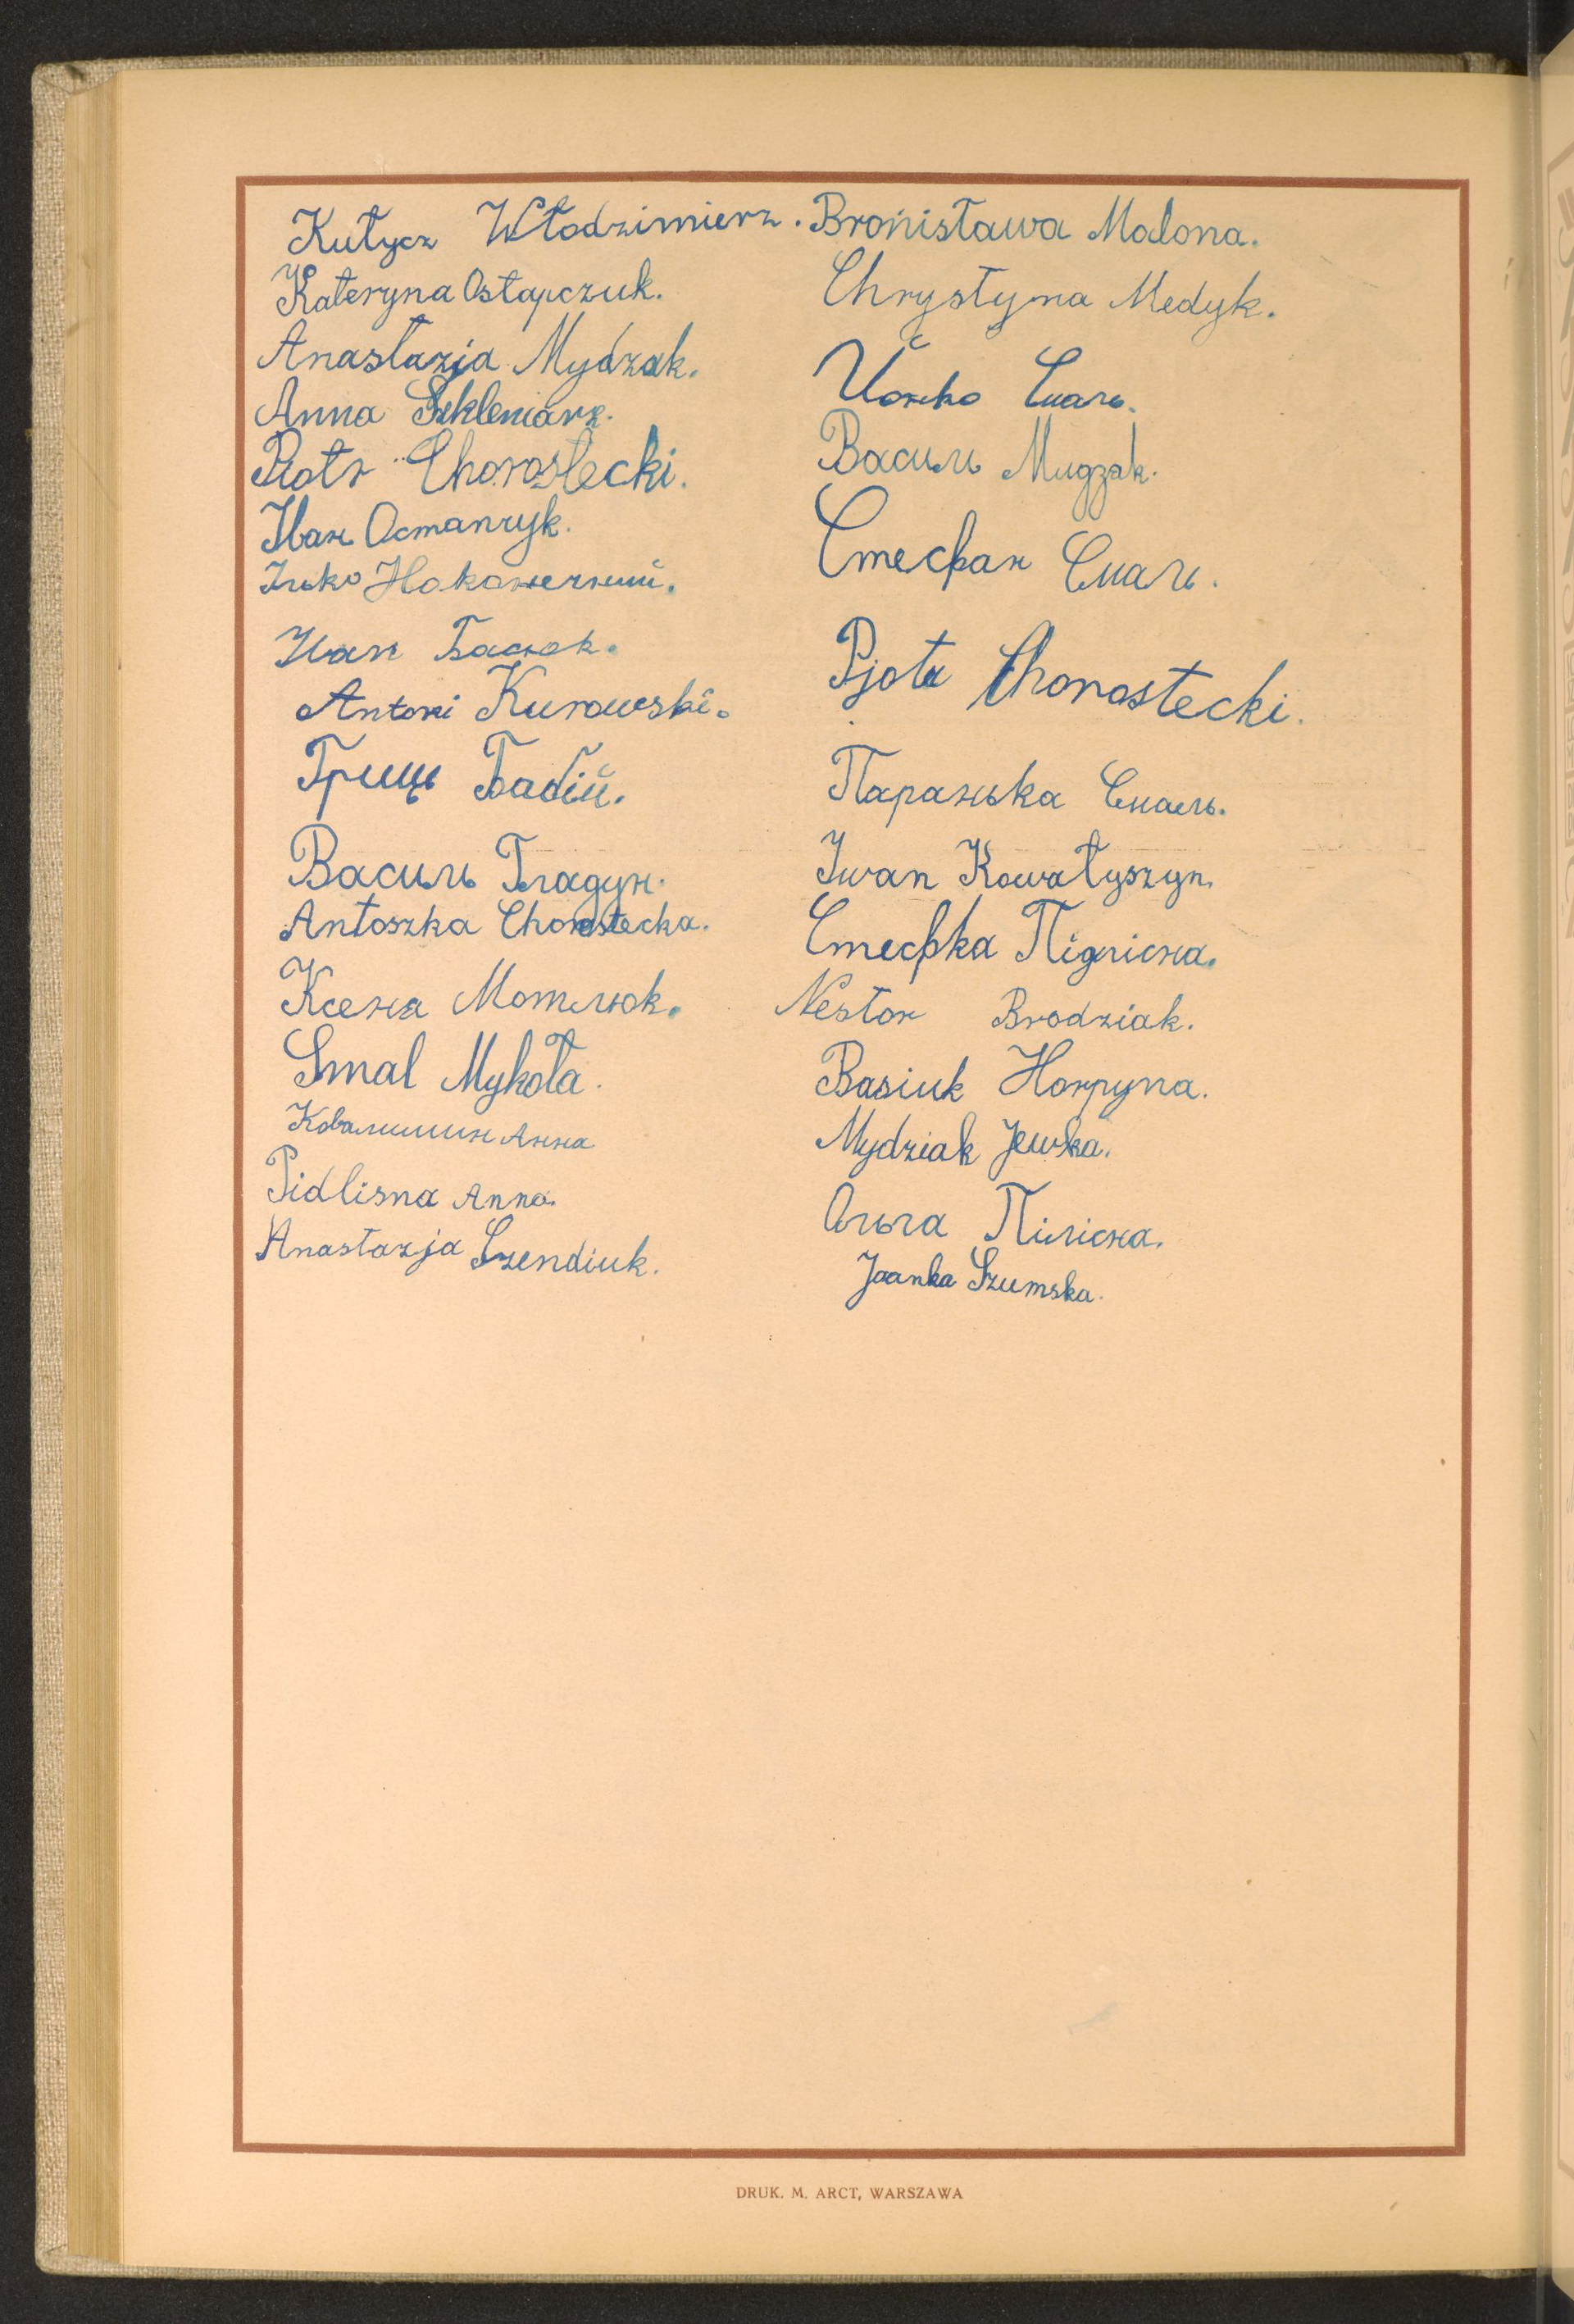 Kutycz Włodzimierz.
Kateryna Ostapczuk.
Anastazja Mydzak.
Anna Szkleniarz.
Piotr Chorostecki.
Іван
Ілько
Іван
Antoni Kurowski.
Гриць Бабій.
Василь Гладун.
Antoszka Chorostecka.
Ксеня Мотилюк.
Smal Mykoła.
Ковалишин Анна
Pidlisna Anna.
Anastazja Szendiuk.
Bronisława Malona.
Chrystyna Medyk.
Йонько Смаль.
Василь Мидзак.
Стефан Смаль.
Pjotr Chorostecki.
Параська Смаль.
Iwan Kowałyszyn.
Стефка Підлісна.
Nestor Brodziak.
Basiuk Horpyna.
Mydziak Jewka.
Ольга Пілісна.
Joanka Szumska.
DRUK. M. ARCT, WARSZAWA